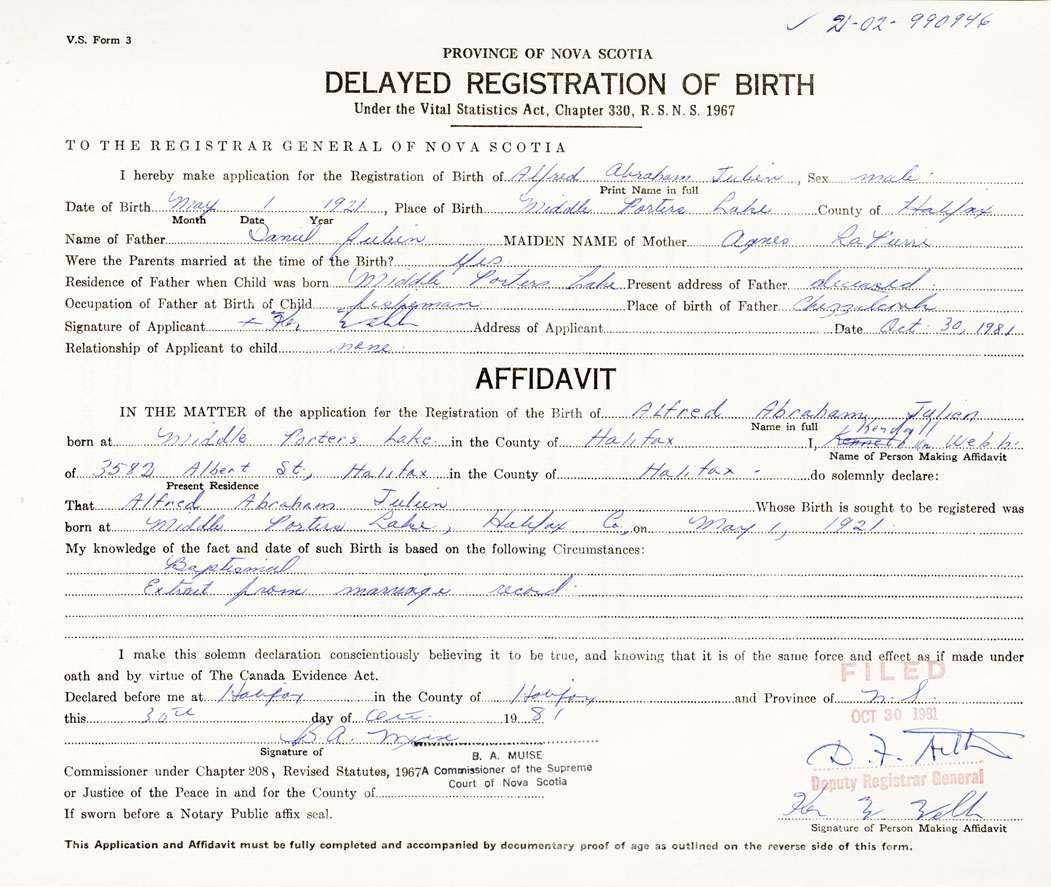 21-02-990946
V.S. Form 3
PROVINCE OF NOVA SCOTIA
DELAYED REGISTRATION OF BIRTH
Under the Vital Statistics Act, Chapter 330, R.S.N.S. 1967
TO THE REGISTRAR GENERAL OF NOVA SCOTIA
I hereby make application for the Registration of Birth of Alfred Abraham Julien, Sex male
Print Name in full
Date of Birth May 1 1921, Place of Birth Middle Porters Lake County of Halifax
Month Date Year
Name of Father Daniel Julien MAIDEN NAME of Mother Agnes
Were the Parents married at the time of the Birth? Yes
Residence of Father when Child was born Middle Porters Lake Present address of Father deceased
Occupation of Father at Birth of Child fisherman Place of birth of Father
Signature of Applicant Address of Applicant Date Oct. 30, 1981
Relationship of Applicant to child none
AFFIDAVIT
IN THE MATTER of the application for the Registration of the Birth of Alfred Abraham Julien
Name in full
born at Middle Porters Lake in the County of Halifax I, Kendall Webb
Name of Person Making Affidavit
of 3582 Albert St., Halifax in the County of Halifax - do solemnly declare:
Present Residence
That Alfred Abraham Julien Whose Birth is sought to be registered was
born at Middle Porters Lake, Halifax Co., on May 1, 1921
My knowledge of the fact and date of such Birth is based on the following Circumstances:
Baptismal
Extract from marriage record
I make this solemn declaration conscientiously believing it to be true, and knowing that it is of the same force and effect as if made under
oath and by virtue of The Canada Evidence Act.
FILED
Declared before me at Halifax in the County of Halifax and Province of N.S.
this 30th day of Oct. 1981
OCT 30 1981
B.A. Muise
Signature of
B. A. MUISE
Commissioner under Chapter 208, Revised Statutes, 1967 A Commissioner of the Supreme
Court of Nova Scotia
Deputy Registrar General
or Justice of the Peace in and for the County of
If sworn before a Notary Public affix seal.
Signature of Person Making Affidavit
This Application and Affidavit must be fully completed and accompanied by documentary proof of age as outlined on the reverse side of this form.